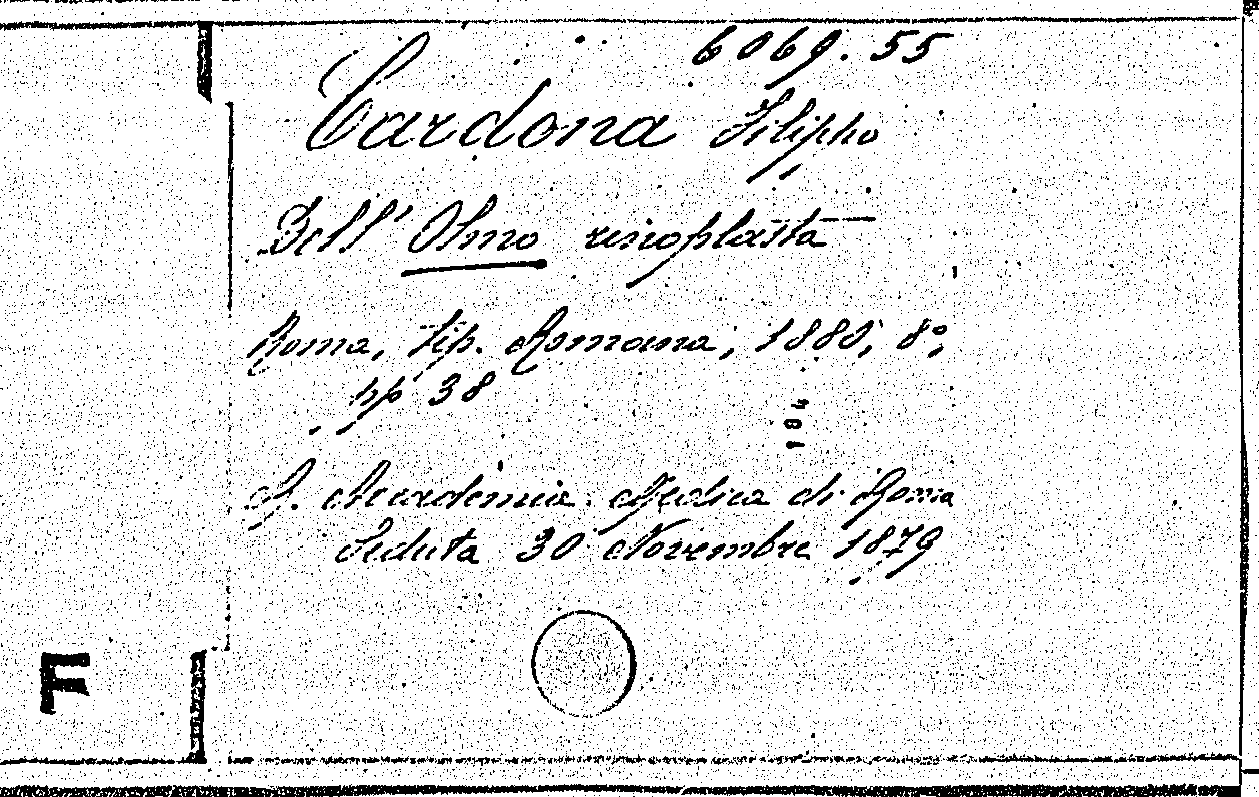 6069.55
Cardona Filippo
Dell' Olmo rinoplasta
Roma, Tip. Romana, 1880, 8°,
pp 38
104
R. Accademia Medica di Roma
Seduta 30 Novembre 1879
F